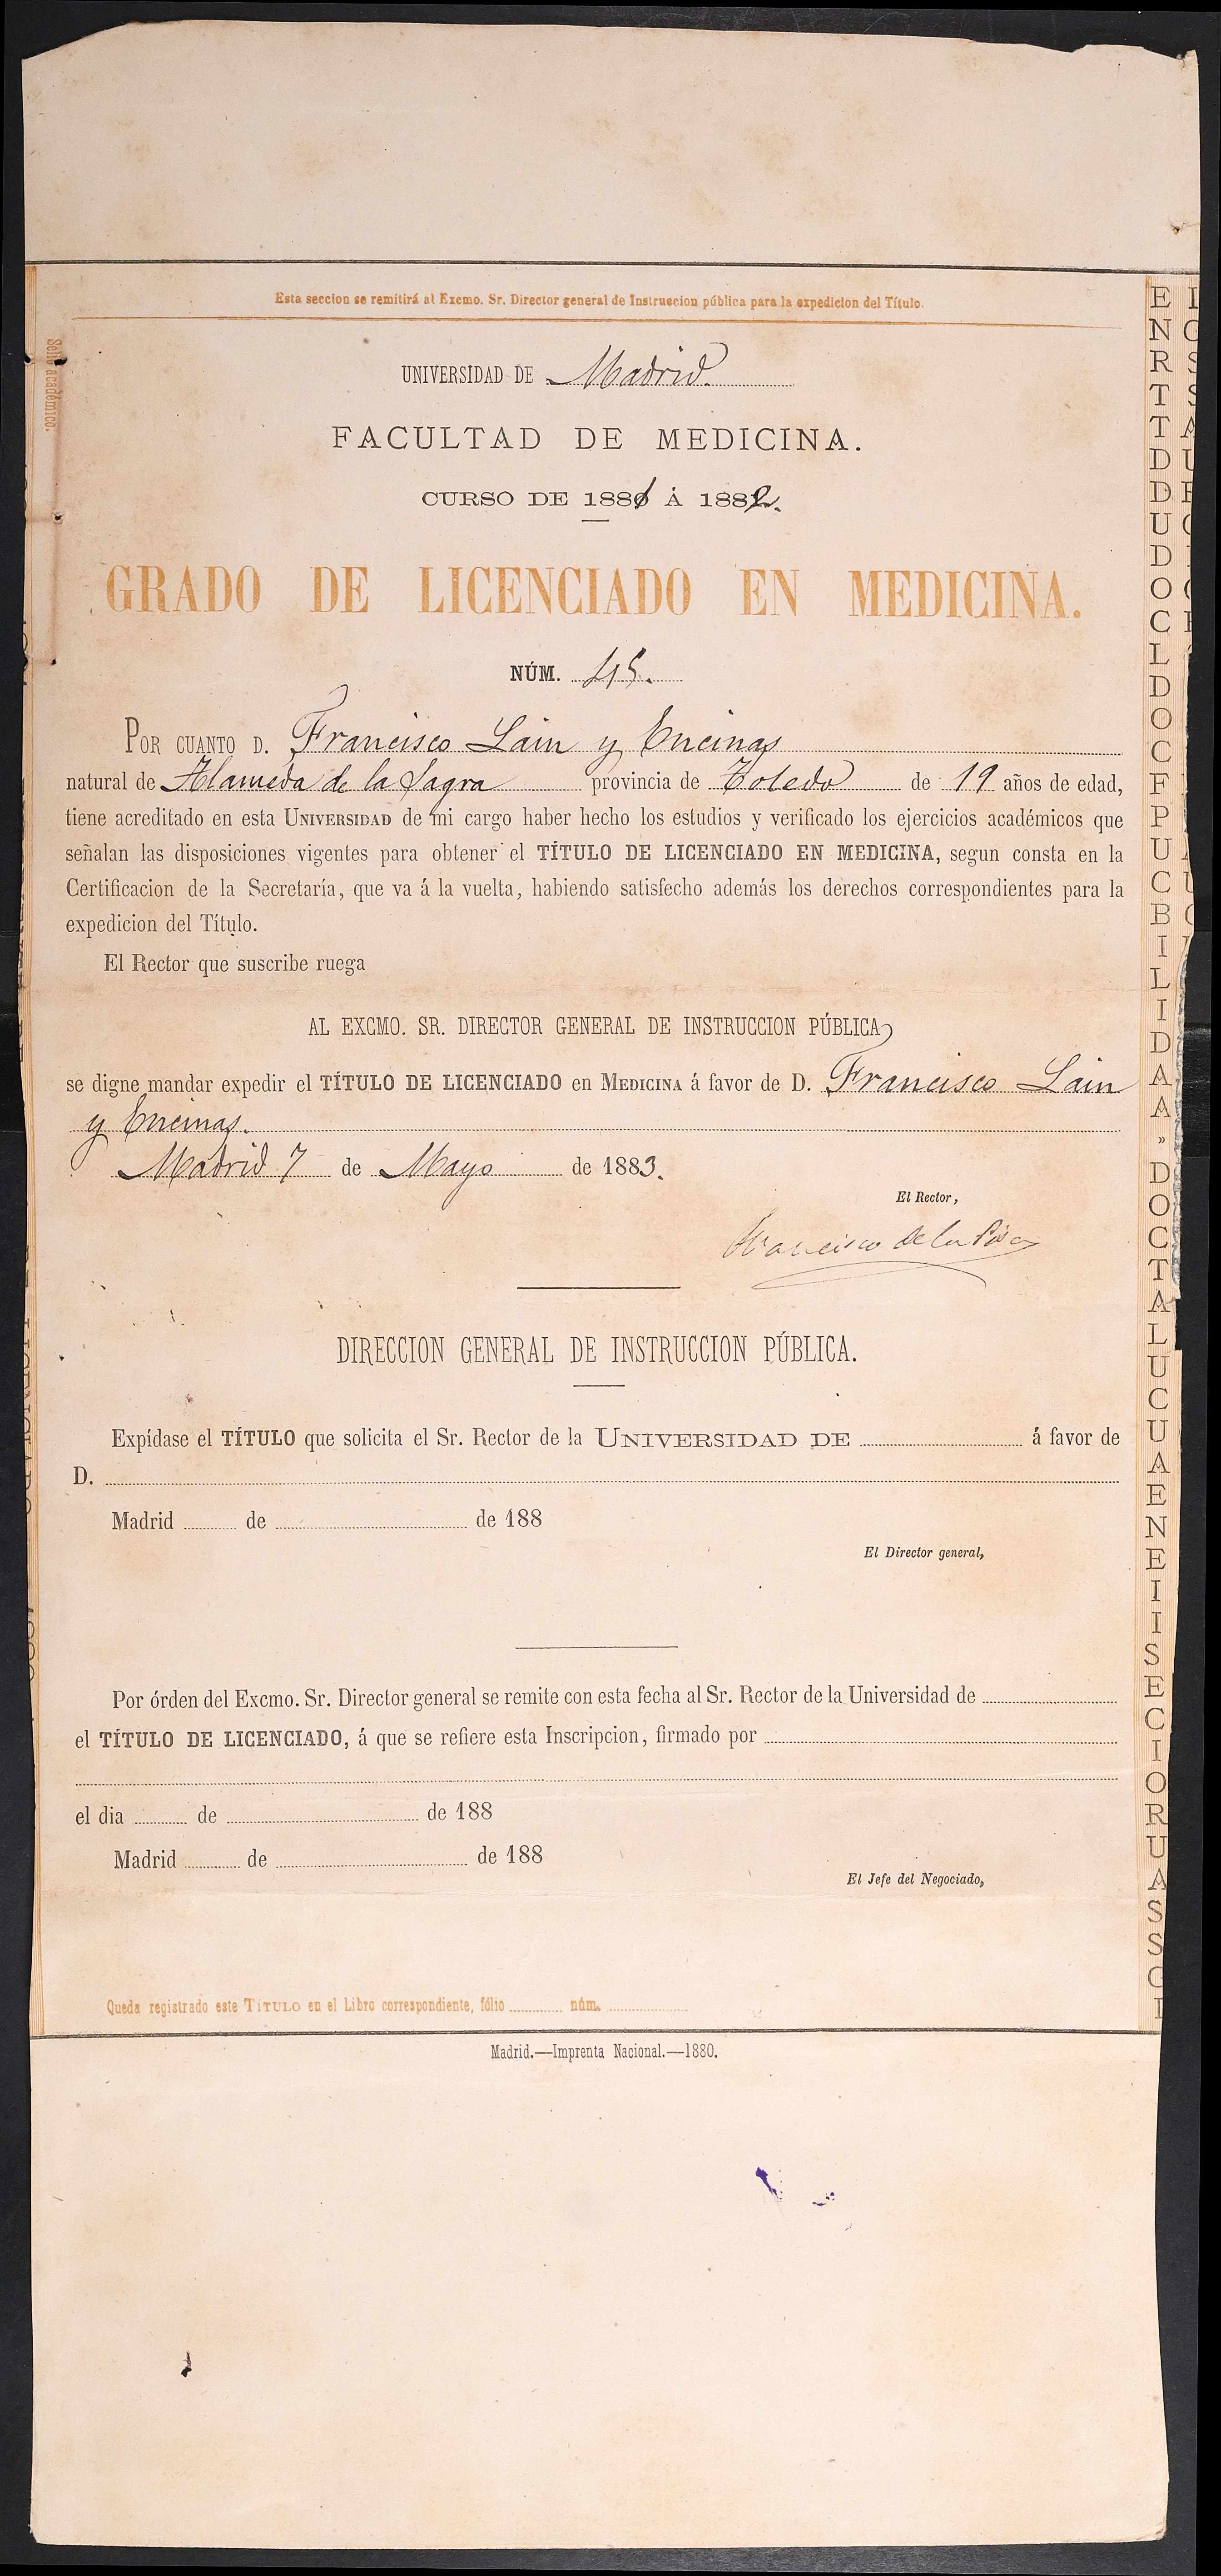 Esta seccion se remitirá al Excmo. Sr. Director general de Instruccion pública para la expedicion del Título.
Sello académico.
UNIVERSIDAD DE Madrid.
FACULTAD DE MEDICINA.
CURSO DE 1881 Á 1882.
GRADO DE LICENCIADO EN MEDICINA.
NÚM. 45.
POR CUANTO D. Francisco Lain y Encinas
natural de Alameda de la Sagra provincia de Toledo de 19 años de edad,
tiene acreditado en esta UNIVERSIDAD de mi cargo haber hecho los estudios y verificado los ejercicios académicos que
señalan las disposiciones vigentes para obtener el TÍTULO DE LICENCIADO EN MEDICINA, segun consta en la
Certificacion de la Secretaría, que va á la vuelta, habiendo satisfecho además los derechos correspondientes para la
expedicion del Título.
El Rector que suscribe ruega
AL EXCMO. SR. DIRECTOR GENERAL DE INSTRUCCION PÚBLICA
se digne mandar expedir el TÍTULO DE LICENCIADO en MEDICINA á favor de D. Francisco Lain
y Encinas.
Madrid 7 de Mayo de 1883.
El Rector,
Francisco de la Pisa
DIRECCION GENERAL DE INSTRUCCION PÚBLICA.
Expídase el TÍTULO que solicita el Sr. Rector de la UNIVERSIDAD DE á favor de
D.
Madrid de de 188
El Director general,
Por órden del Excmo. Sr. Director general se remite con esta fecha al Sr. Rector de la Universidad de
el TÍTULO DE LICENCIADO, á que se refiere esta Inscripcion, firmado por
el dia de de 188
Madrid de de 188
El Jefe del Negociado,
Queda registrado este TÍTULO en el Libro correspondiente, fólio núm.
Madrid.—Imprenta Nacional.—1880.